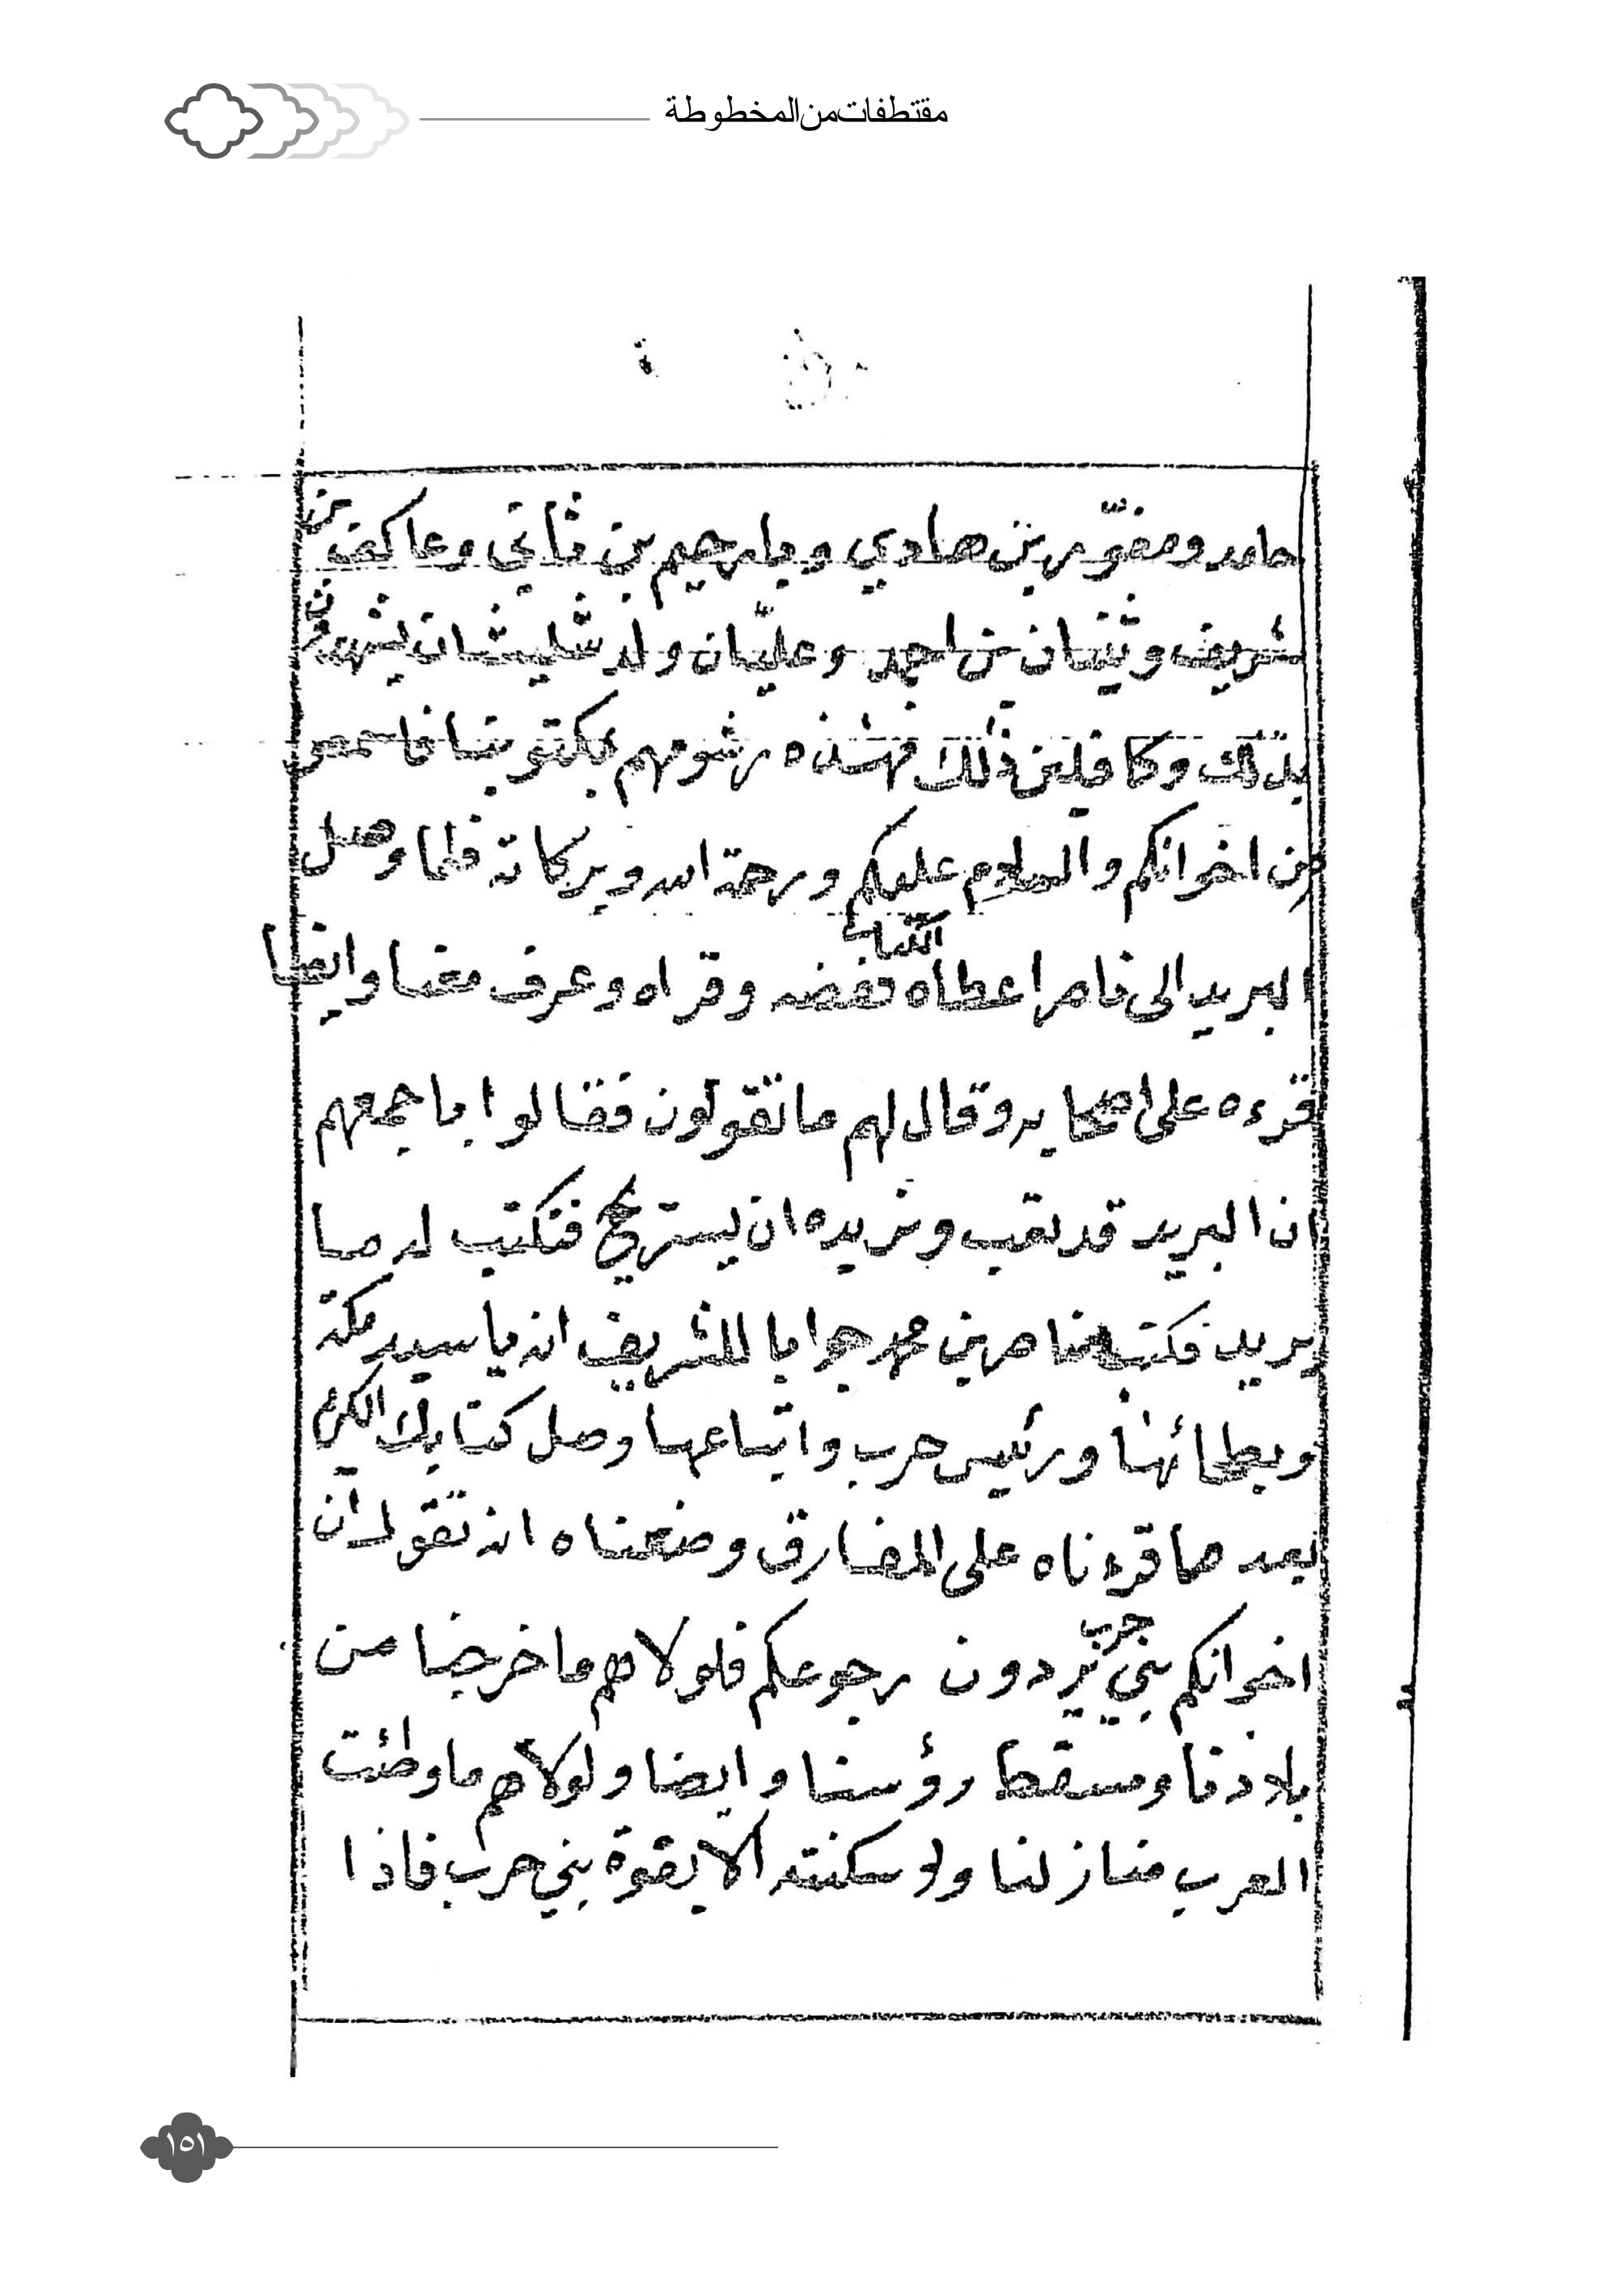 مقتطفات من المخطوطة
حامد ومفوّز بن هادي وبارحيم بن ثاني وعاكف بن
شريف وثنيان بن احمد وعليّان ولد شليشان يشهدون
بذلك وكافلين ذلك فهذه رشومهم بمكتوبنا فاسمعو
من اخوانكم والسلام عليكم ورحمة الله وبركاته فلما وصل
البريد الى ناصر اعطاه الكتاب ففضه وقراه وعرف معنا وايضا
قرءه على اصحابه وقال لهم ما تقولون فقالوا باجمعهم
ان البريد قد تعب ونريده ان يستريح فنكتب له ما
يريد فكتب ناصر بن محمد جوابا للشريف انه يا سيد مكة
وبطحائها ورئيس حرب واتباعها وصل كتابك الكريم
بعد ما قرءناه على المفارق وضعناه انه تقول ان
اخوانكم بني حرب يردون رجوعكم فلولاهم ما خرجنا من
بلادنا ومسقط رؤسنا وايضا ولولاهم ما وطئت
العرب منازلنا ولا سكنته الا بقوة بني حرب فاذا
١٥١